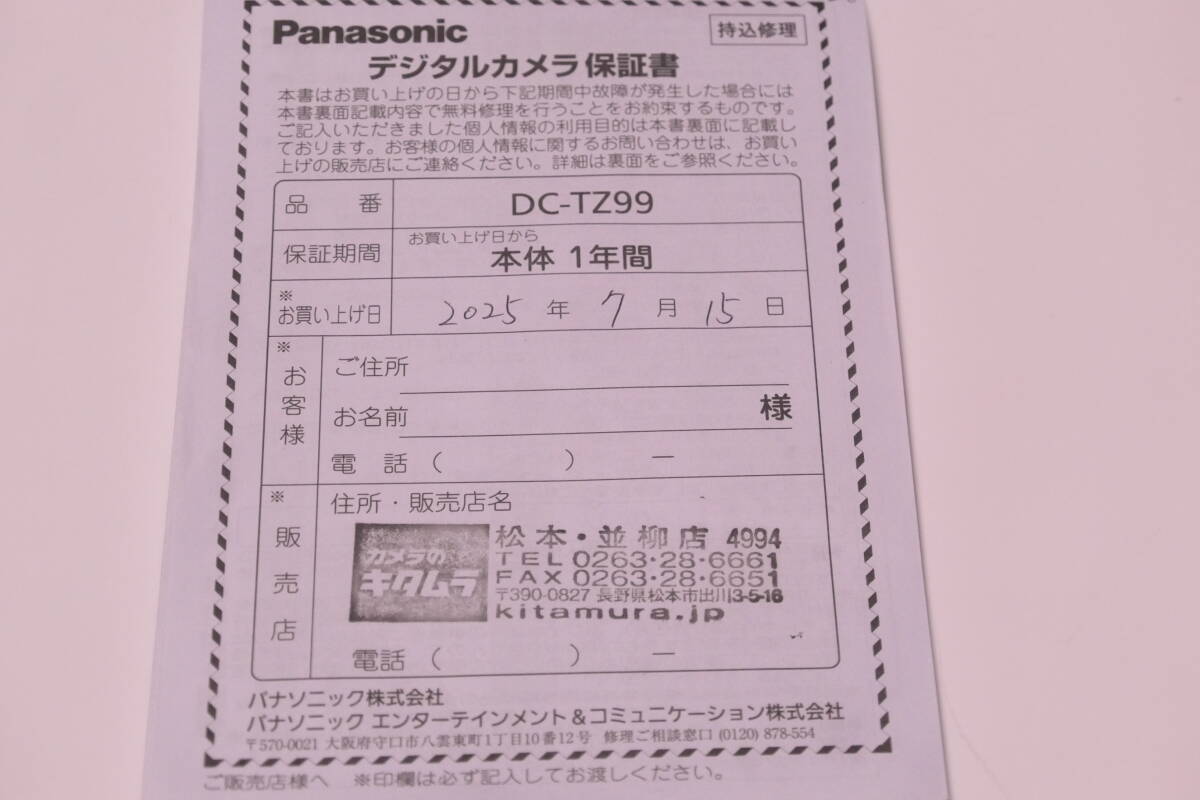 Panasonic
持込修理
デジタルカメラ保証書
本書はお買い上げの日から下記期間中故障が発生した場合には
本書裏面記載内容で無料修理を行うことをお約束するものです。
ご記入いただきました個人情報の利用目的は本書裏面に記載し
ております。お客様の個人情報に関するお問い合わせは、お買い
上げの販売店にご連絡ください。詳細は裏面をご参照ください。
品番 DC-TZ99
保証期間 お買い上げ日から
本体 1年間
※
お買い上げ日 2025 年 7 月 15 日
※
お客様
ご住所
お名前 様
電話 ( ) ー
※
販売店
住所・販売店名
カメラの
キタムラ
松本・並柳店 4994
TEL 0263・28・6661
FAX 0263・28・6651
〒390-0827 長野県松本市出川3-5-16
kitamura.jp
電話 ( ) ー
パナソニック株式会社
パナソニック エンターテインメント&コミュニケーション株式会社
〒570-0021 大阪府守口市八雲東町1丁目10番12号 修理ご相談窓口 (0120) 878-554
ご販売店様へ ※印欄は必ず記入してお渡しください。